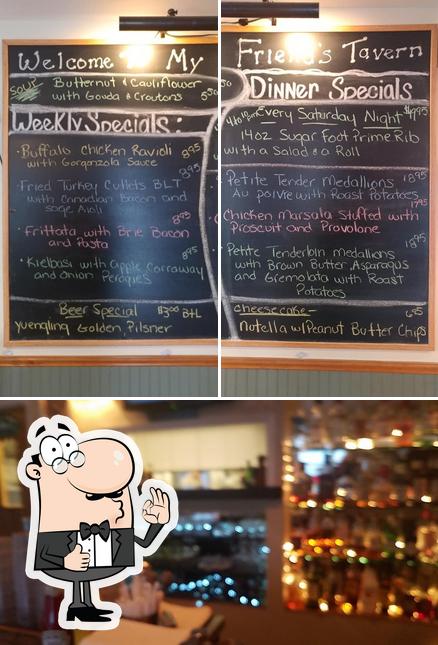 Welcome To My
Soup
Butternut & Cauliflower
with Gouda & Croutons
Weekly Specials:
• Buffalo Chicken Ravioli 8.95
with Gorgonzola Sauce
8.95
• Fried Turkey Cutlets BLT
with Canadian Bacon and
sage Aioli
8.95
• Frittata with Brie Bacon
and Pasta
8.95
• Kielbasi with apple Carraway
and onion Perogies
Beer Special $3.00 BtL
Yuengling Golden Pilsner
Friend's Tavern
Dinner Specials
Every Saturday Night
14oz Sugar Foot Prime Rib
with a Salad & a Roll
Petite Tender Medallions 18.95
Au poivre with Roast Potatoes
17.95
Chicken Marsala Stuffed with
Proscuit and Provalone
18.95
Petite Tenderloin medallions
with Brown Butter Asparagus
and Gremolota with Roast
Potatoes
Cheesecake - 6.95
Notella w/Peanut Butter Chips